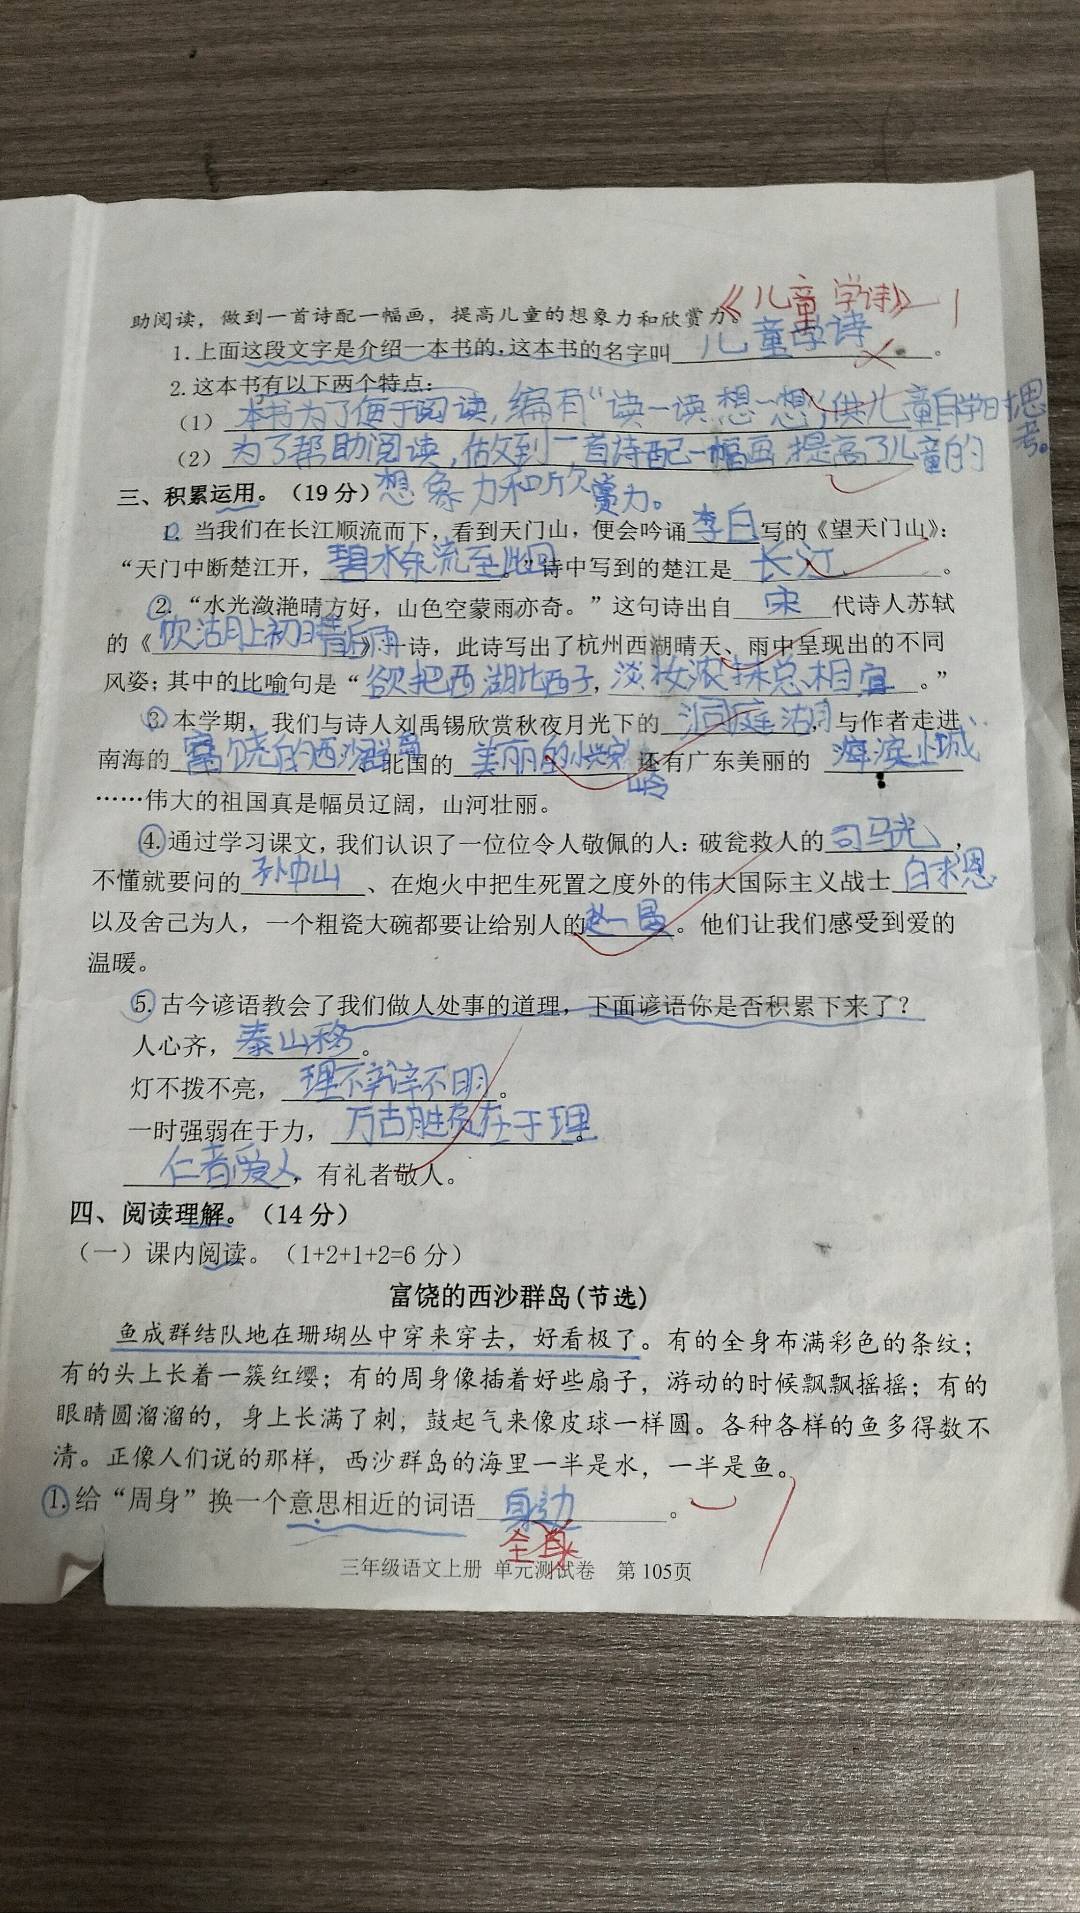 《儿童学诗》 -1
助阅读，做到一首诗配一幅画，提高儿童的想象力和欣赏力。
1.上面这段文字是介绍一本书的，这本书的名字叫儿童学诗。
2.这本书有以下两个特点：
（1）本书为了便于阅读，编有“读一读 想一想，供儿童自学时思考。
（2）为了帮助阅读，做到一首诗配一幅画 提高了儿童的
想象力和欣赏力。
三、积累运用。（19分）
1. 当我们在长江顺流而下，看到天门山，便会吟诵李白写的《望天门山》：
“天门中断楚江开，碧水东流至此回。”诗中写到的楚江是长江。
2.“水光潋滟晴方好，山色空蒙雨亦奇。”这句诗出自宋代诗人苏轼
的《饮湖上初晴后雨》一诗，此诗写出了杭州西湖晴天、雨中呈现出的不同
风姿；其中的比喻句是“欲把西湖比西子，淡妆浓抹总相宜。”
3.本学期，我们与诗人刘禹锡欣赏秋夜月光下的洞庭湖，与作者走进
南海的富饶的西沙群岛、北国的美丽的小兴安岭 还有广东美丽的 海滨小城
……伟大的祖国真是幅员辽阔，山河壮丽。
4.通过学习课文，我们认识了一位位令人敬佩的人：破瓮救人的司马光，
不懂就要问的孙中山、在炮火中把生死置之度外的伟大国际主义战士白求恩
以及舍己为人，一个粗瓷大碗都要让给别人的赵一曼。他们让我们感受到爱的
温暖。
5.古今谚语教会了我们做人处事的道理，下面谚语你是否积累下来了？
人心齐，泰山移。
灯不拨不亮，理不辩不明。
一时强弱在于力，万古胜负在于理。
仁者爱人，有礼者敬人。
四、阅读理解。（14分）
（一）课内阅读。（1+2+1+2=6分）
富饶的西沙群岛(节选)
鱼成群结队地在珊瑚丛中穿来穿去，好看极了。有的全身布满彩色的条纹；
有的头上长着一簇红缨；有的周身像插着好些扇子，游动的时候飘飘摇摇；有的
眼睛圆溜溜的，身上长满了刺，鼓起气来像皮球一样圆。各种各样的鱼多得数不
清。正像人们说的那样，西沙群岛的海里一半是水，一半是鱼。
1.给“周身”换一个意思相近的词语身边。
全身
三年级语文上册 单元测试卷 第105页